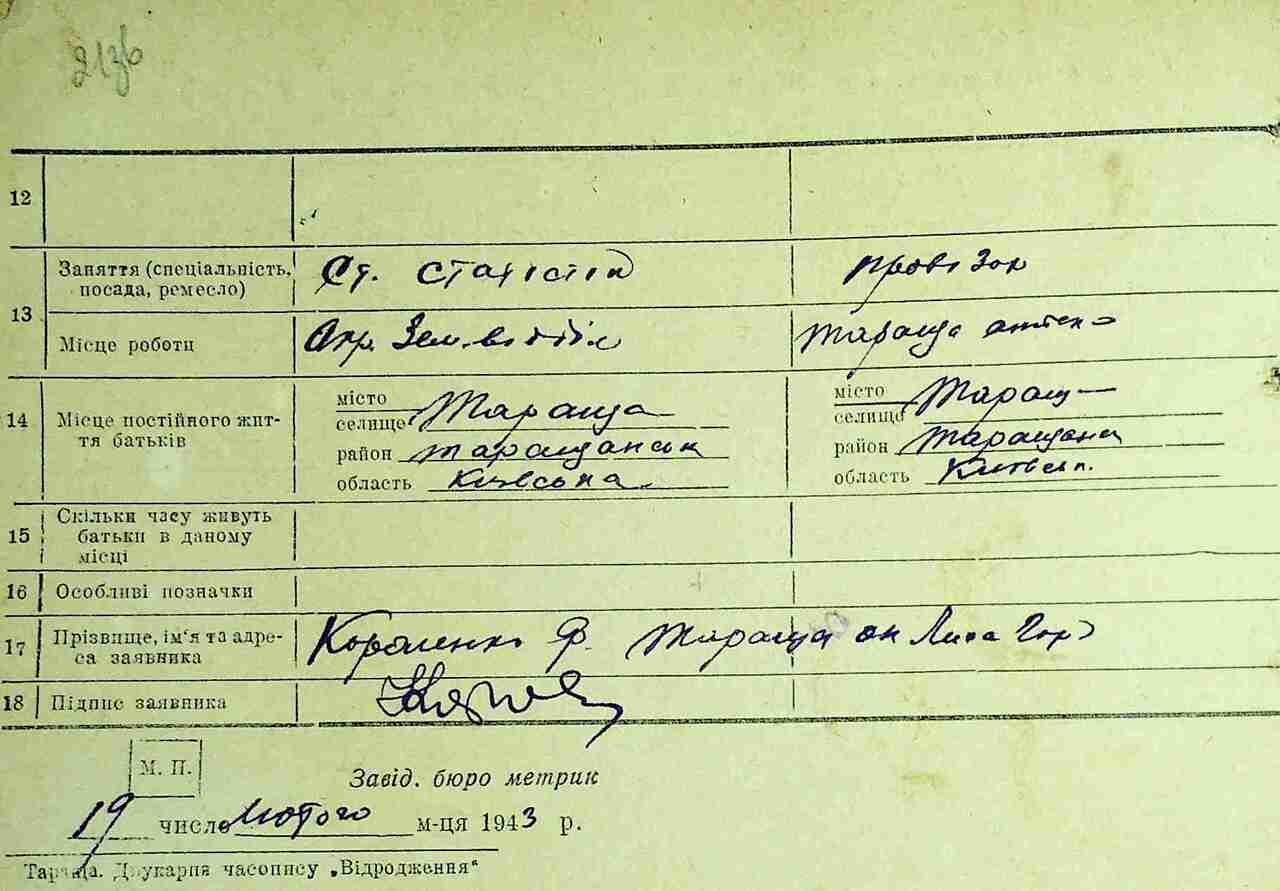 213б
12
13 Заняття (спеціальність, посада, ремесло) Ст. статістік провізор
Місце роботи Окр. Зем. відділ Тараща аптека
14 Місце постійного життя батьків
місто селище Тараща місто селище Таращ
район Таращанськ район Таращан
область Київська область Київськ.
15 Скільки часу живуть батьки в даному місці
16 Особливі позначки
17 Прізвище, ім'я та адреса заявника Ф. Тараща Лиса Гор
18 Підпис заявника
М. П.
Завід. бюро метрик
19 число Лютого м-ця 1943 р.
Тараща. Друкарня часопису „Відродження“